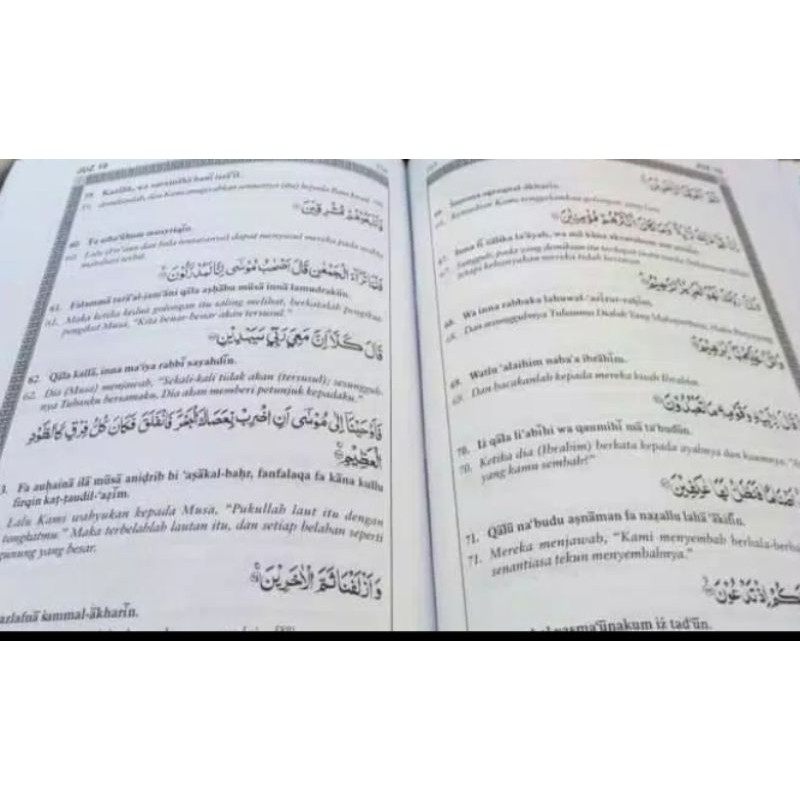 JUZ 19
59. Każālik, wa auraṡnāhā banī isrā'īl.
59. demikianlah, dan Kami anugerahkan semuanya (itu) kepada Bani Israil.
فَاَتْبَعُوْهُمْ مُّشْرِقِيْنَ
60. Fa atba'ūhum musyriqīn.
60. Lalu (Fir'aun dan bala tentaranya) dapat menyusul mereka pada waktu
matahari terbit.
فَلَمَّا تَرَاۤءَ الْجَمْعٰنِ قَالَ اَصْحٰبُ مُوْسٰٓى اِنَّا لَمُدْرَكُوْنَ
61. Falammā tarā'al-jam'āni qāla aṣḥābu mūsā innā lamudrakūn.
61. Maka ketika kedua golongan itu saling melihat, berkatalah pengikut-
pengikut Musa, "Kita benar-benar akan tersusul."
قَالَ كَلَّا اِنَّ مَعِيَ رَبِّيْ سَيَهْدِيْنِ
62. Qāla kallā, inna ma'iya rabbī sayahdīn.
62. Dia (Musa) menjawab, "Sekali-kali tidak akan (tersusul); sesungguh-
nya Tuhanku bersamaku, Dia akan memberi petunjuk kepadaku."
فَاَوْحَيْنَآ اِلٰى مُوْسٰٓى اَنِ اضْرِبْ بِّعَصَاكَ الْبَحْرَ فَانْفَلَقَ فَكَانَ كُلُّ فِرْقٍ كَالطَّوْدِ
الْعَظِيْمِ
3. Fa auḥainā ilā mūsā aniḍrib bi 'aṣākal-baḥr, fanfalaqa fa kāna kullu
firqin kaṭ-ṭaudil-'aẓīm.
Lalu Kami wahyukan kepada Musa, "Pukullah laut itu dengan
tongkatmu." Maka terbelahlah lautan itu, dan setiap belahan seperti
gunung yang besar.
وَاَزْلَفْنَا ثَمَّ الْاٰخَرِيْنَ
azlafnā ṡammal-ākharīn.
JUZ 19
66. Ṡumma agraqnal-ākharīn.
66. Kemudian Kami tenggelamkan golongan yang lain.
اِنَّ فِيْ ذٰلِكَ لَاٰيَةً وَمَا كَانَ اَكْثَرُهُمْ مُّؤْمِنِيْنَ
67. Inna fī żālika la'āyah, wa mā kāna akṡaruhum mu'minīn.
67. Sungguh, pada yang demikian itu terdapat
tetapi kebanyakan mereka tidak beriman.
وَاِنَّ رَبَّكَ لَهُوَ الْعَزِيْزُ الرَّحِيْمُ
68. Wa inna rabbaka lahuwal-'azīzur-raḥīm.
68. Dan sesungguhnya Tuhanmu Dialah Yang Mahaperkasa, Maha Penyayang.
وَاتْلُ عَلَيْهِمْ نَبَاَ اِبْرٰهِيْمَ
69. Watlu 'alaihim naba'a ibrāhīm.
69. Dan bacakanlah kepada mereka kisah Ibrahim.
قَالَ لِاَبِيْهِ وَقَوْمِهٖ مَا تَعْبُدُوْنَ
70. Iż qāla li'abīhi wa qaumihī mā ta'budūn.
70. Ketika dia (Ibrahim) berkata kepada ayahnya dan kaumnya, "Apa
yang kamu sembah?"
اَصْنَامًا فَنَظَلُّ لَهَا عٰكِفِيْنَ
71. Qālū na'budu aṣnāman fa naẓallu lahā 'ākifīn.
71. Mereka menjawab, "Kami menyembah berhala-berha
senantiasa tekun menyembahnya."
كُمْ اِذْ تَدْعُوْنَ
yasma'ūnakum iż tad'ūn.